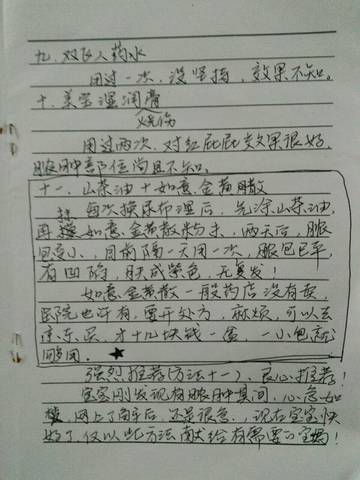 九、双飞人药水
用过一次,没坚持,效果不知。
十、美宝湿润膏
烧伤
用过两次,对红屁屁效果很好,
脓肿部位尚且不知。
十一、山茶油+如意金黄散
每次换尿布湿后,先涂山茶油,
再如意金黄散药末,两天后,脓
包变小,目前隔一天用一次,脓包已平,
有凹陷,肤成紫色,无复发!
如意金黄散一般药店没有卖,
医院也许有,要开处方,麻烦,可以去
京东买,才十几块钱一盒,一小包就
够用。★
强烈推荐(方法十一)、良心推荐!
宝宝刚发现有脓肿其间,心急如
,网上了后,还是很急,现在宝宝快
好了,仅以些方法献给有需要的宝妈!